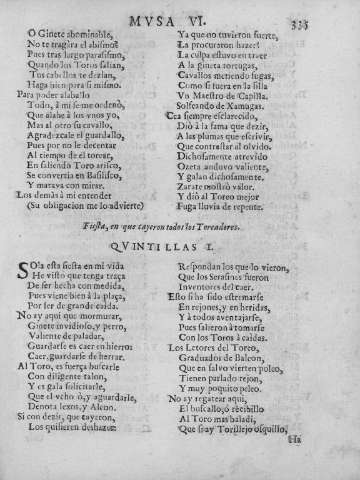 MVSA VI.
335
O Ginete abominable,
No te tragàra el abismo?
Pues tras largo parasismo,
Quando los Toros salian,
Tus cabellos te dezian,
Haga bien para si mismo.
Para poder alaballo
Todo, à mi se me ordenò,
Que alabe à los vnos yo,
Mas al otro su cavallo,
Agradezcale el guardallo,
Pues por no le decentar
Al tiempo de el torear,
En saliendo Toro arisco,
Se convertia en Basilisco,
Y matava con mirar.
Los demàs à mi entender
(Su obligacion me lo advierte)
Ya que no tuvieron suerte,
La procuraron hazer:
La culpa estuvo en traer
A la gineta tortugas,
Cavallos metiendo fugas,
Como si fuera en la silla
Vn Maestro de Capilla.
Solfeando de Xamugas.
Cea siempre esclarecido,
Diò à la fama que dezir,
A las plumas que escrivir,
Que contrastar al olvido.
Dichosamente atrevido
Ozeta anduvo valiente,
Y galan dichosamente.
Zarate mostrò valor.
Y diò al Toreo mejor
Fuga lluvia de repente.
Fiesta, en que cayeron todos los Toreadores.
QVINTILLAS I.
SOla esta fiesta en mi vida
He visto que tenga traça
De ser hecha con medida,
Pues viene bien à la plaça,
Por ser de grande caida.
No ay aquì que mormurar,
Ginete invidioso, y perro,
Valiente de paladar,
Guardarse es caer en hierro:
Caer, guardarse de herrar.
Al Toro, es fuerça buscarle
Con diligente talon,
Y es gala solicitarle,
Que el vcho ò, y aguardarle,
Denota lexos, y Alcon.
Si con dezir, que cayeron,
Los quisieren deshazer
Respondan los que lo vieron,
Que los Serafines fueron
Inventores del caer.
Esto si ha sido estremarse
En rejones, y en heridas,
Y à todos aventajarse,
Pues salieron à tomarse
Con los Toros à caidas.
Los Letores del Toreo,
Graduados de Balcon,
Que en salvo vierten poleo,
Tienen parlado rejon,
Y muy poquito peleo.
No ay regatear aqui,
El buscallo, ò recibillo
Al Toro mas baladì,
Que si ay Torillejo osquillo,
Ha